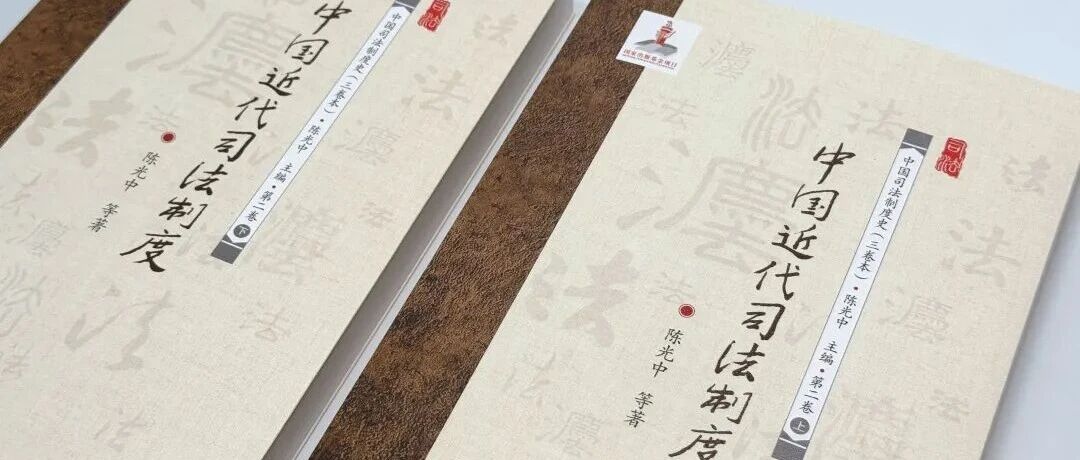 司法
中国司法制度史（三卷本）·陈光中 主编·第二卷 下
中国近代司法制度
陈光中 等著
国家出版基金项目
司法
中国司法制度史（三卷本）·陈光中 主编·第二卷 上
中国近代司法制度
陈光中 等著